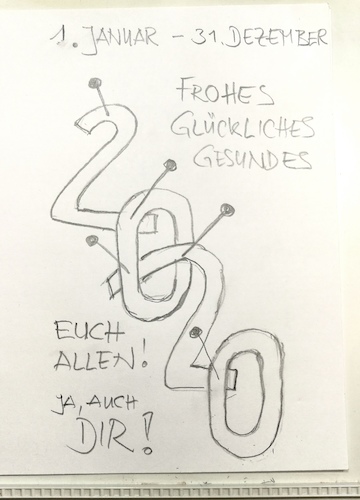 1. JANUAR – 31. DEZEMBER
FROHES
GLÜCKLICHES
GESUNDES
2020
EUCH
ALLEN!
JA, AUCH
DIR!